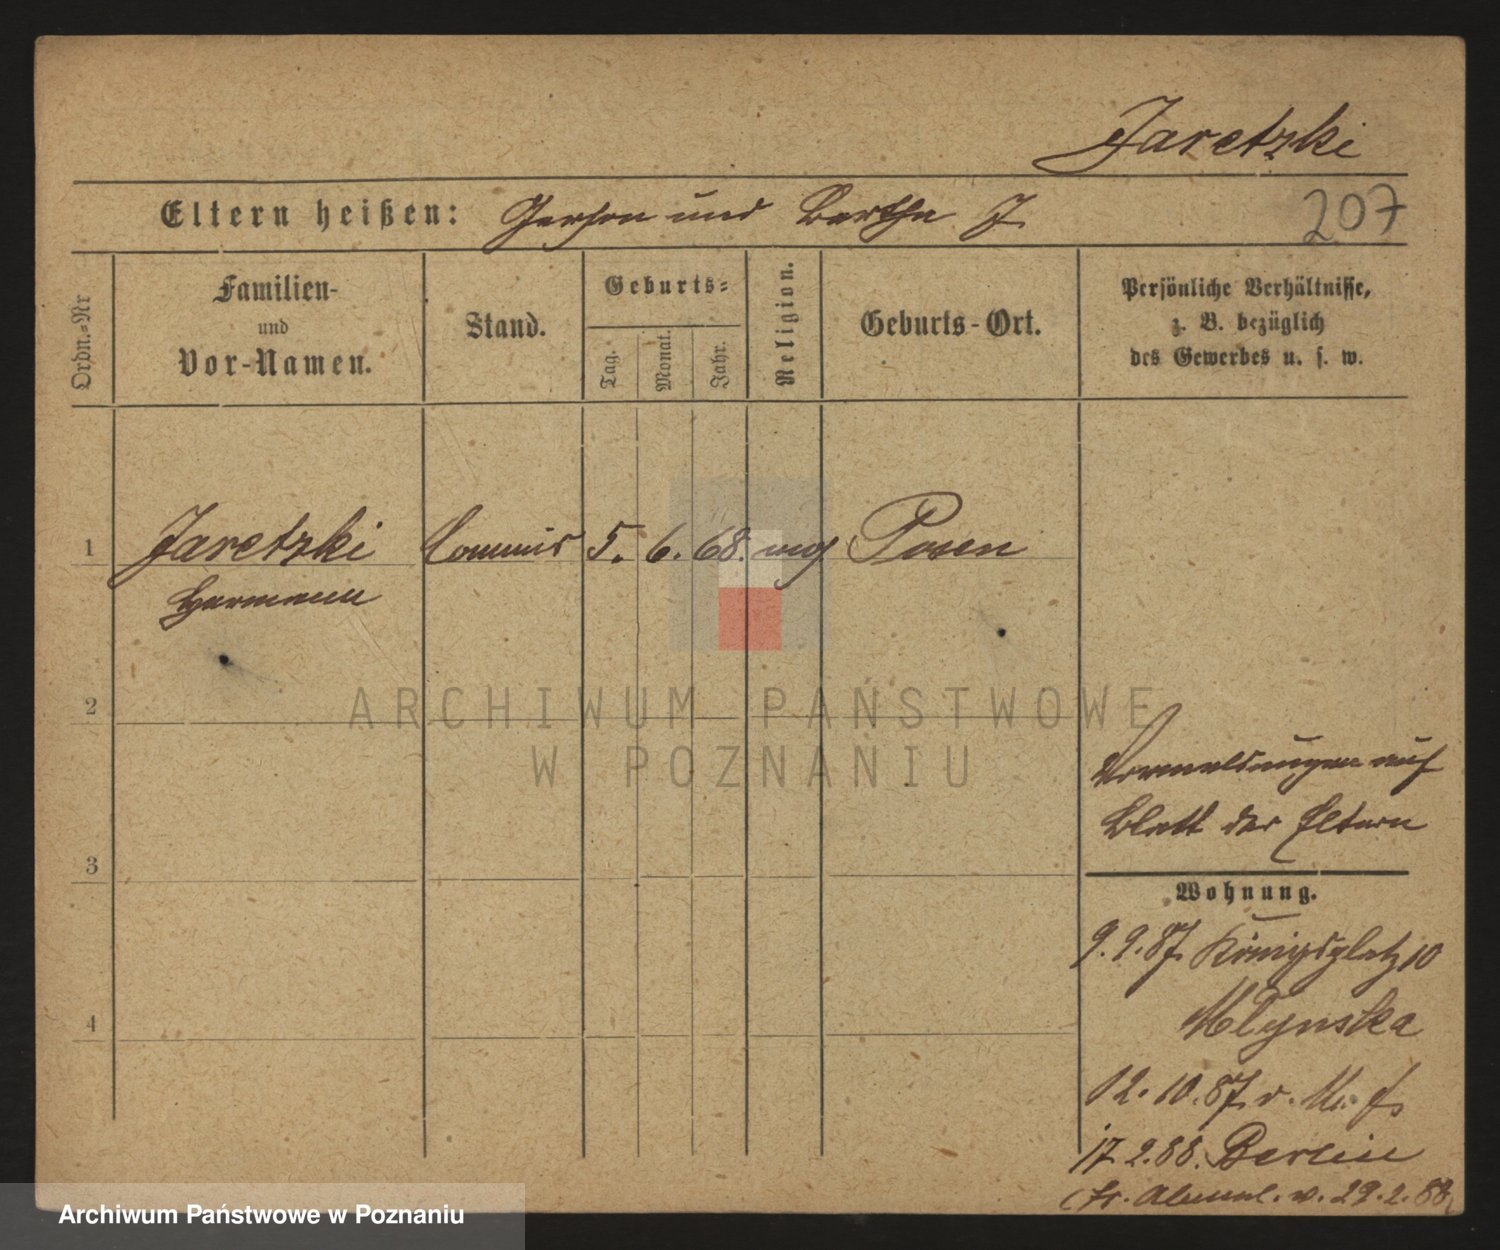 Jaretzki
Eltern heißen: Gerson und Bertha J.
207
Ordn.=Nr
Familien-
und
Vor-Namen.
Stand.
Geburts=
Tag.
Monat.
Jahr.
Religion.
Geburts-Ort.
Persönliche Verhältnisse,
z. B. bezüglich
des Gewerbes u. s. w.
1 Jaretzki Commis 5. 6. 68. mos Posen
Hermann
2
ARCHIWUM PAŃSTWOWE
W POZNANIU
Vormeldungen auf
Blatt der Eltern
3
Wohnung.
9.9.87. Königsplatz 10
Mlynska
4
12.10.87 v.
17.2.88. Berlin
(fr. Abmel. v. 29.2.88)
Archiwum Państwowe w Poznaniu